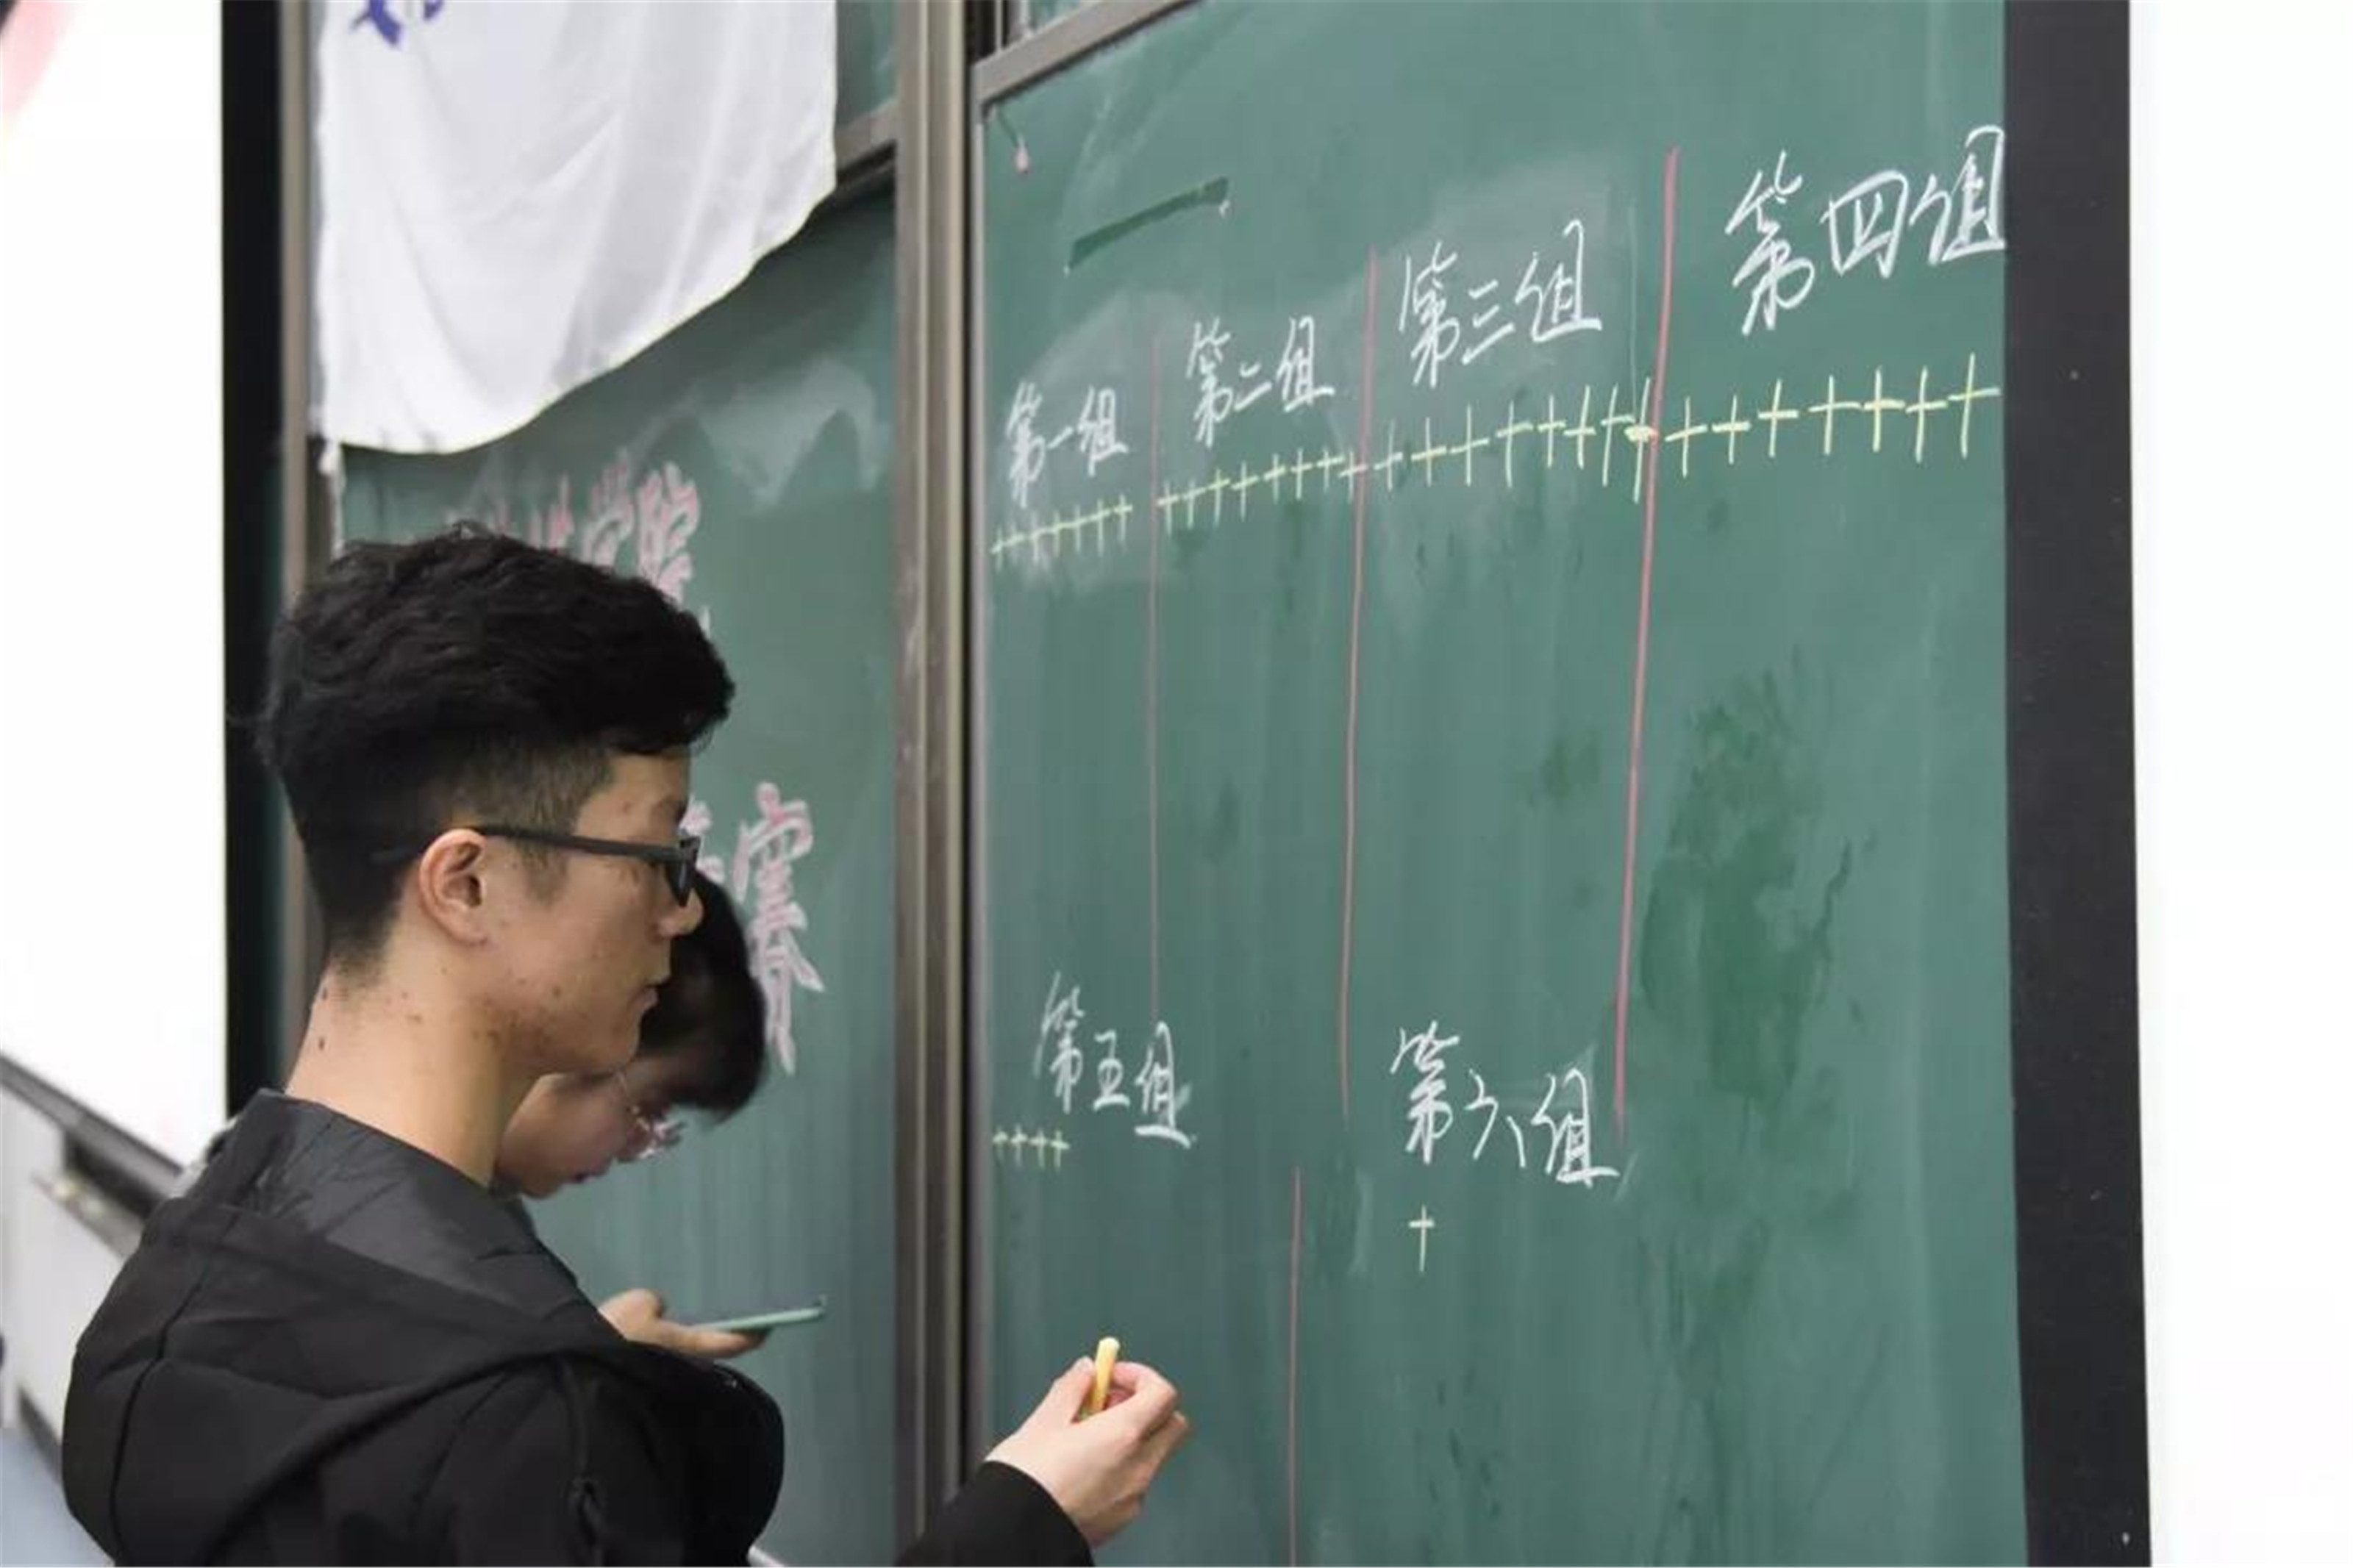 第一组 第二组 第三组 第四组
第五组 第六组
学院
赛